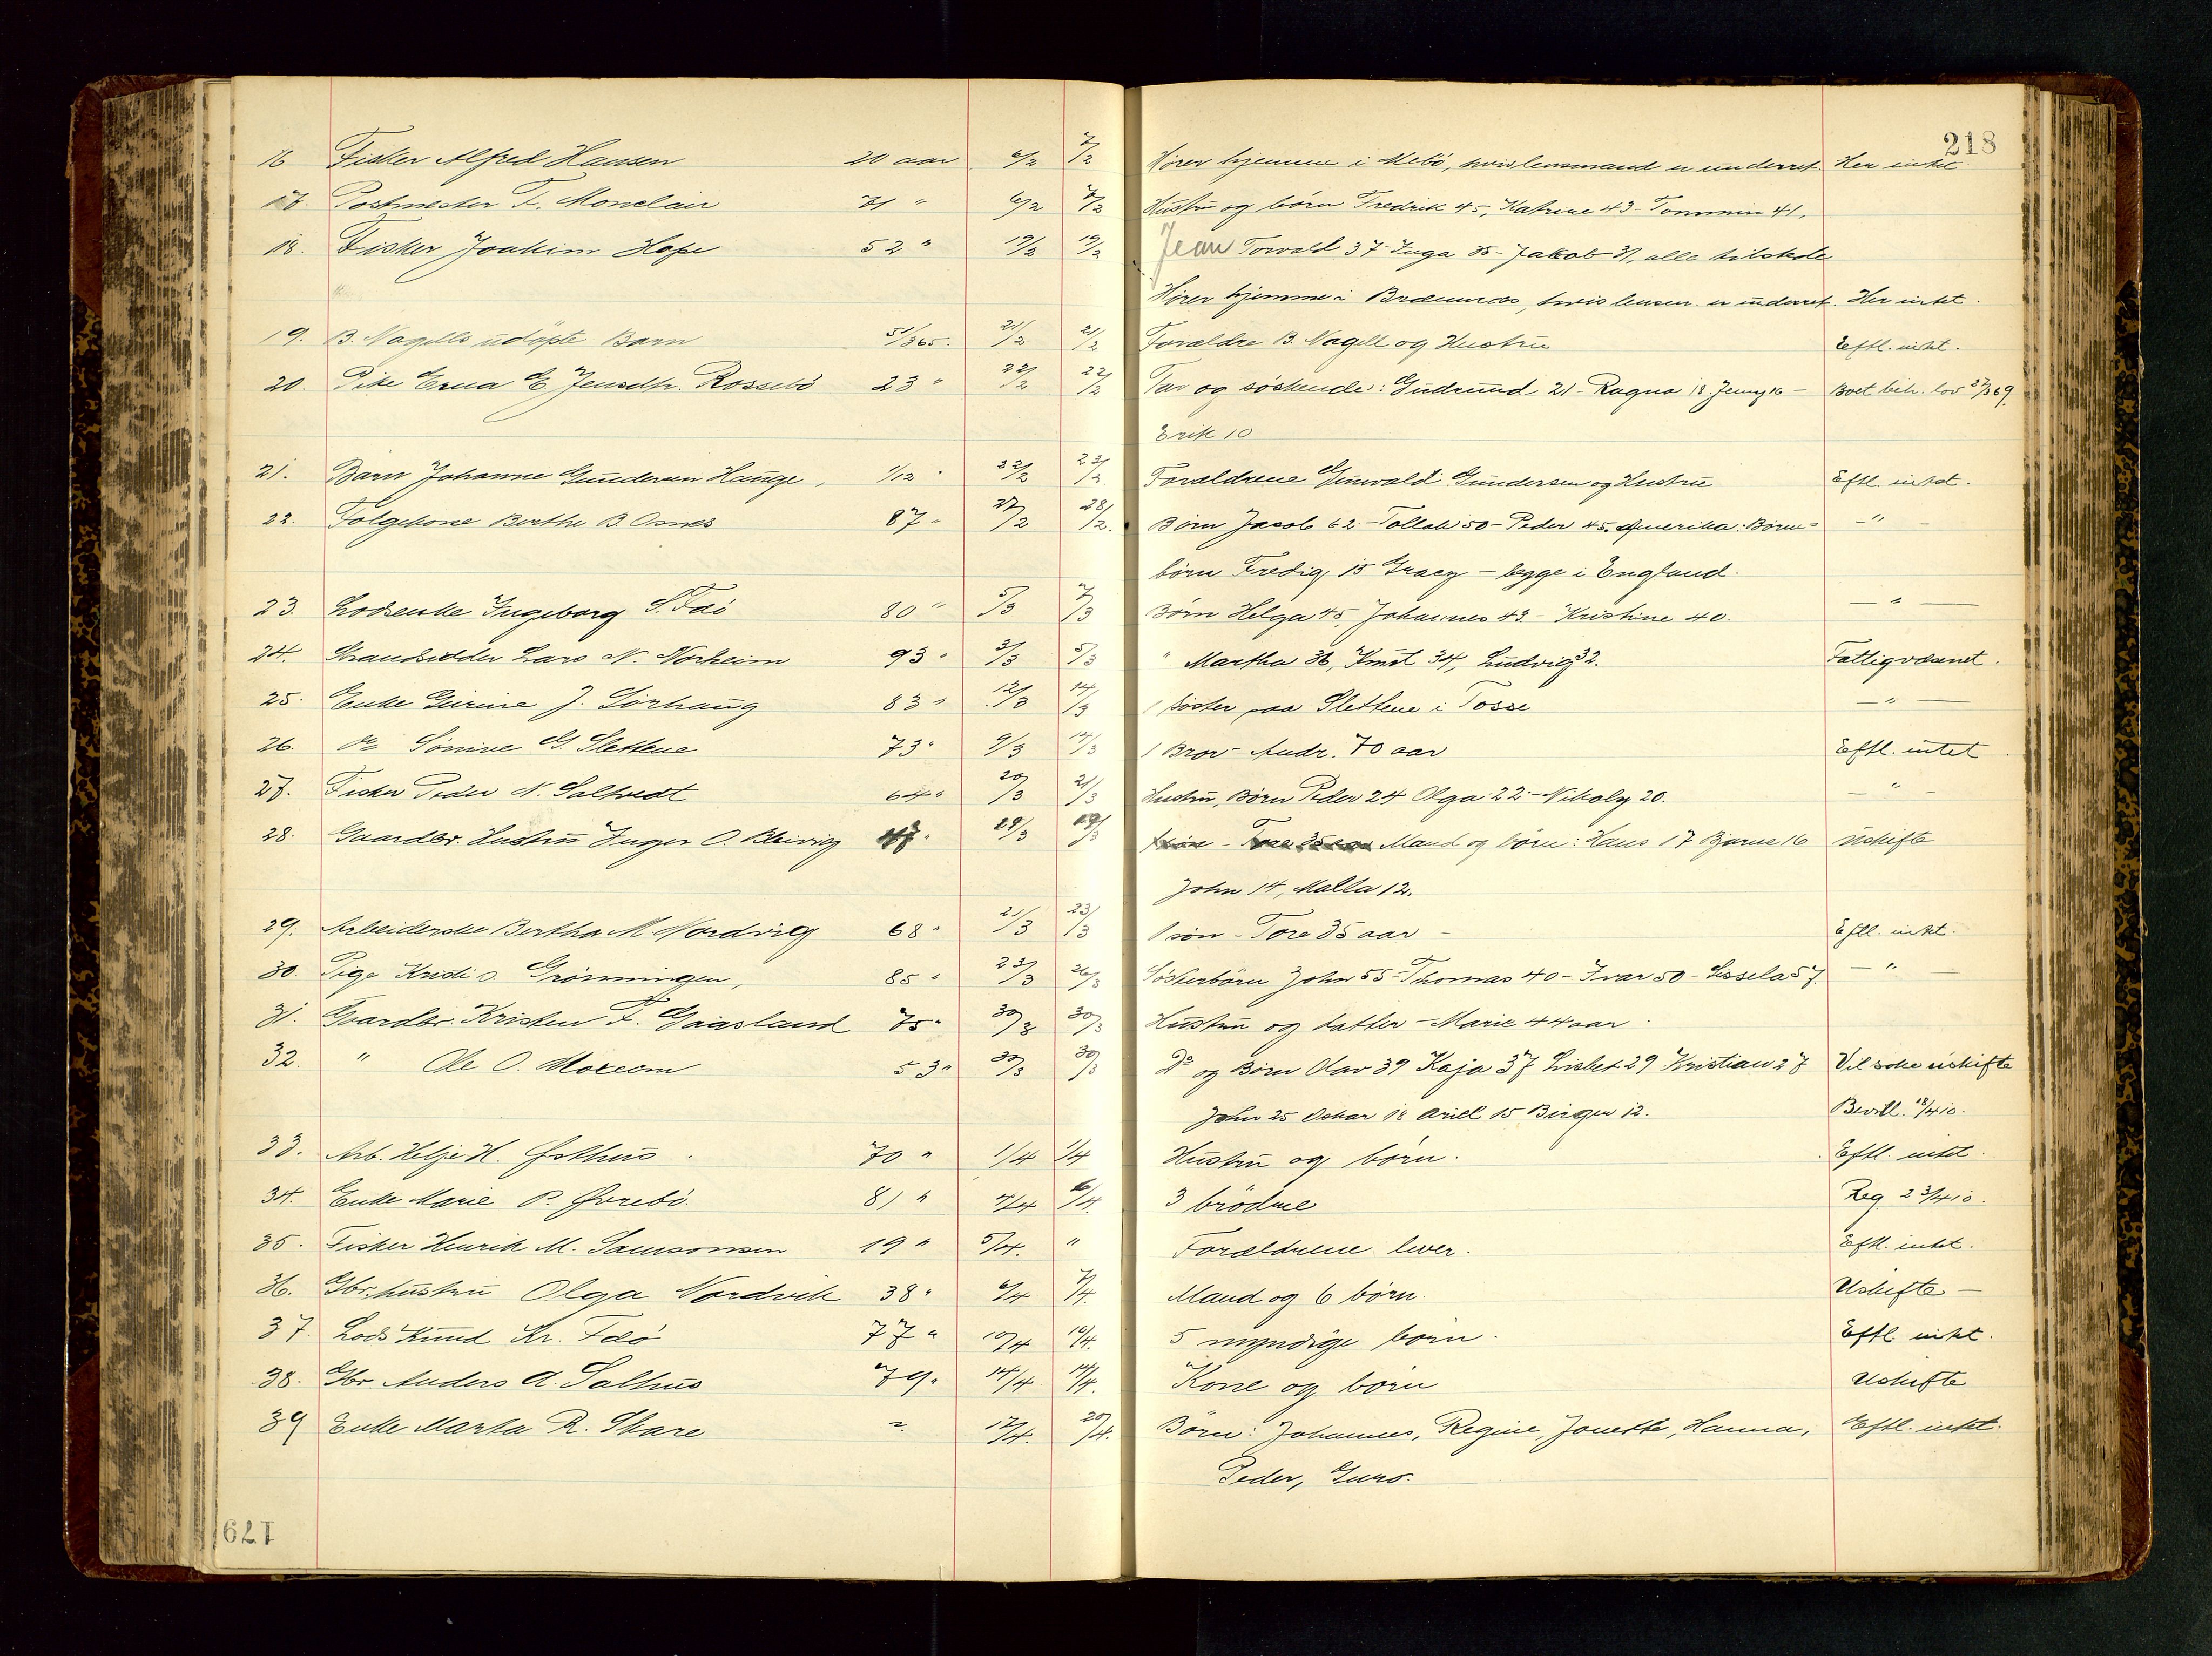 218
16 Fisker Alfred Hansen 20 aar 6/2 7/2 Hører hjemme i Mebö, hvis lensmand er underret. Her intet
17. Postmester F. Monclair 71 " 6/2 7/2 Hustru og børn Fredrik 45, Katrine 43 - Tommin 41,
18. Fisker Joakim Hope 52 " 19/2 19/2 Jean Torvald 37 - Inga 35 - Jakob 31, alle tilstede
Hører hjemme i Bremnes, hvis lensm. er underret. Her intet.
19. B. Nagells udöpte Barn 51/365. 21/2 21/2 Forældre B. Nagell og Hustru Eftl. intet.
20. Pike Erna E. Jensdtr. Rossebö 23 " 22/2 22/2 Far og söskende: Gudrund 21 - Ragna 18 Jenny 16 - Boet beh. lov 27/369.
Erik 10
21. Barn Johanne Gundersen Hauge, 1/12 " 22/2 23/2 Forældrene Gunvald Gundersen og Hustru Eftl. intet.
22. Folgekone Berthe B. Osnes 87 " 27/2 28/2. Börn Jacob 62 - Tollak 50 - Peder 45. Amerika. Börne-  - " -
börn Fredig 15 Gracy - begge i England.
23. Lodsenke Ingeborg S. Fæö 80 " 5/3 7/3 Børn Helga 45, Johannes 43 - Kristine 40. - " -
24. Strandsidder Lars N. Norheim 93 " 3/3 5/3 " Martha 36, Knut 34, Ludvig 32. Fattigvæsnet.
25. Enke Gurine J. Sörhaug 83 " 12/3 14/3 1 Söster paa Slettene i Tosse - " -
26. do Sönive G. Slettene 73 " 9/3 14/3 1 Bror - Andr. 70 aar Eftl. intet
27. Fisker Peder N. Saltvedt 64 " 20/3 21/3 Hustru, Børn Peder 24 Olga 22 - Nikoly 20. - " -
28. Gaardbr. Hustru Inger O. Bleivig 47 " 29/3 29/3 Mand og börn: Hans 17 Bjarne 16 Uskifte
John 14, Malla 12.
29. Arbeiderske Bertha M. Nordvig 68 " 21/3 23/3 1 sön - Tore 35 aar - Eftl. intet.
30. Pige Kristi O. Grönningen, 85 " 23/3 26/3 Søsterbörn John 55 - Thomas 40 - Ivar 50 - Sissela 57. - " -
31. Gaardbr. Kristen F. Gaasland 75 " 30/3 30/3 Hustru og datter - Marie 44 aar.
32. " Ole O. Moxeem 53 " 30/3 30/3 Do og Børn Olav 39 Kaja 37 Lisbet 29 Kristian 27 Vil söke uskifte
John 25 Oskar 18 Ariel 15 Birger 12. Bevill. 18/410.
33. Arb. Helje H. Østhus. 70 " 1/4 1/4 Hustru og børn. Eftl. intet
34. Enke Marie P. Øvrebö. 81 " 4/4 6/4. 3 brödre Reg. 23/410.
35. Fisker Henrik M. Samsonsen 19 " 5/4. " Forældrene lever. Eftl. intet.
36. Gbr. hustru Olga Nordvik 38 " 6/4 7/4. Mand og 6 börn. Uskifte -
37. Lods Knud Kr. Fæö 77 " 10/4 10/4. 5 myndige børn. Eftl. intet.
38. Gbr. Anders A. Salhus 79 " 14/4 14/4. Kone og børn Uskifte
39 Enke Marta R. Skare 17/4. 20/4. Börn: Johannes, Regine, Jonette, Hanna, Eftl. intet.
Peder, Guro.
179